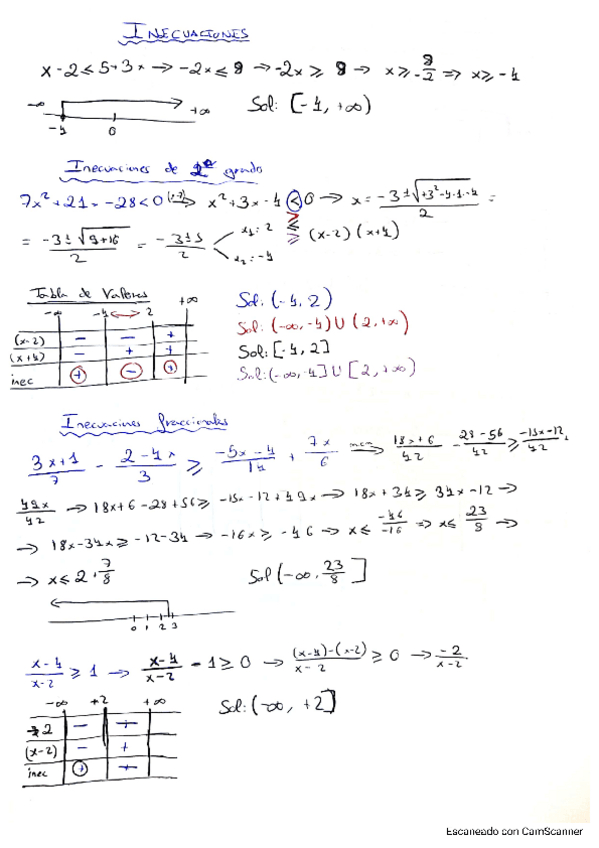 INECUACIONES
x - 2 ≤ 5 + 3x → -2x ≤ 8 → -2x ≥ 8 → x ≥ -8/2 ⇒ x ≥ -4
-∞ +∞ Sol: [-4, +∞)
-4 0
Inecuaciones de 2º grado
7x² + 21x - 28 < 0 (:7)⇒ x² + 3x - 4 < 0 → x = -3 ± √(+3² - 4 · 1 · -4) / 2 =
> ≤ ≥
= -3 ± √(9 + 16) / 2 = -3 ± 5 / 2 x₁: 2 x₂: -4 (x - 2) (x + 4)
Tabla de Valores
-∞ -4 ↔ 2 +∞
(x-2) - - +
(x+4) - + +
inec + - +
Sol: (-4, 2)
Sol: (-∞, -4) ∪ (2, +∞)
Sol: [-4, 2]
Sol: (-∞, -4] ∪ [2, +∞)
Inecuaciones fraccionales
3x+1/7 - 2-4x/3 ≥ -5x-4/14 + 7x/6 mcm→ 18x+6/42 - 28-56/42 ≥ -15x-12/42 +
49x/42 → 18x + 6 - 28 + 56 ≥ -15x - 12 + 49x → 18x + 34 ≥ 34x - 12 →
→ 18x - 34x ≥ -12 - 34 → -16x ≥ -46 → x ≤ -46/-16 ⇒ x ≤ 23/8 →
→ x ≤ 2, 7/8 Sol (-∞, 23/8]
0 1 2 3
x-4/x-2 ≥ 1 → x-4/x-2 - 1 ≥ 0 → (x-4)-(x-2)/x-2 ≥ 0 → -2/x-2
-∞ +2 +∞ Sol: (-∞, +2]
-2 - +
(x-2) - +
inec + +
Escaneado con CamScanner